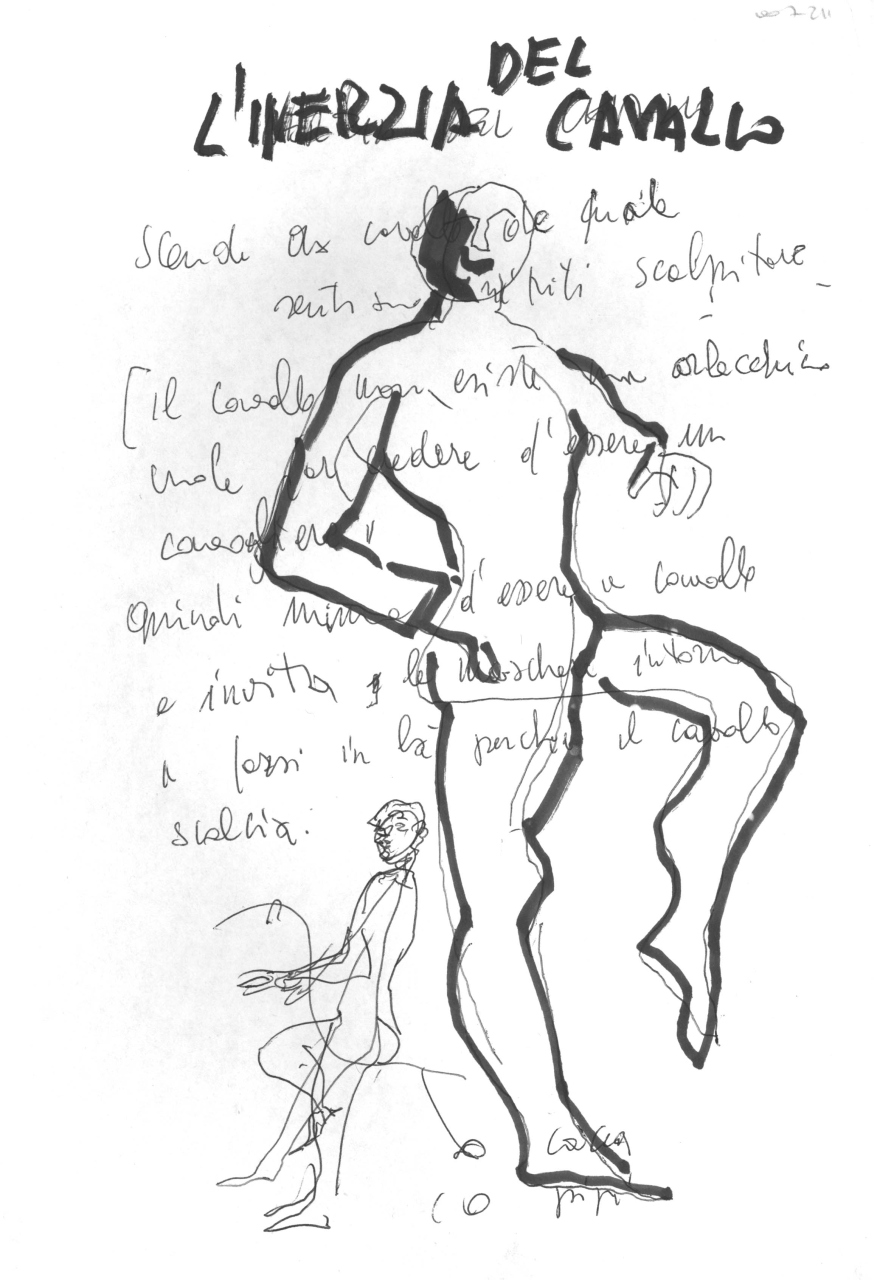 L'INERZIA DEL CAVALLO
Scende dal cavallo del quale
senti scalpitare
[Il cavallo non esiste un arlecchino
vuole far credere d'essere un
cavaliere
quindi mima d'essere a cavallo
e invita le maschere intorno
a farsi in là perché il cavallo
scalcia.
cacca
pipì